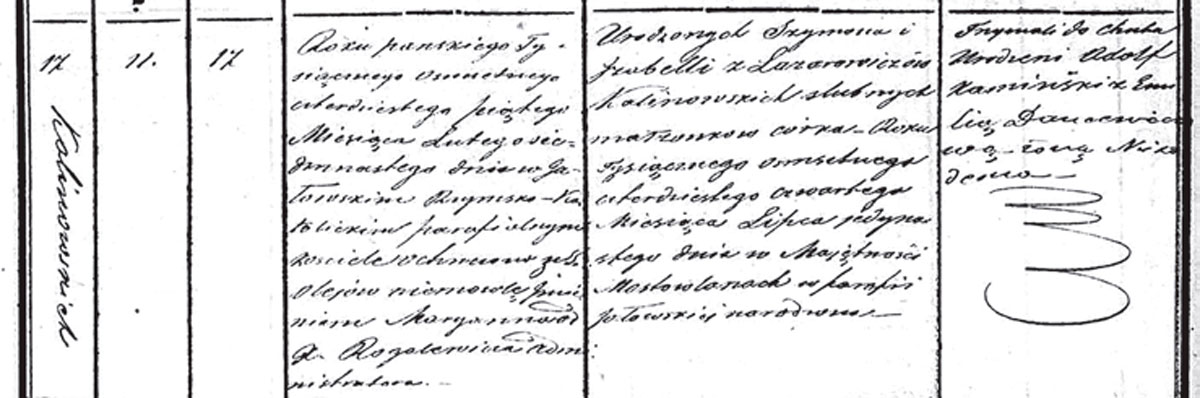 17
11.
17
Kalinowskich
Roku panskiego Ty-
siącznego osmsetnego
czterdziestego piątego
Miesiąca Lutego sie-
dmnastego dnia w Ja-
łowskim Rzymsko-Ka-
tolickim parafialnym
kosciele ochrzczono z
Olejów niemowle Imie-
niem Maryanna od
X. Rogalewicza Admi-
nistratora.
Urodzonych Szymona i
Izabelli z Lazarowiczów
Kalinowskich slubnych
małżonkow córka - Roku
tysiącznego osmsetnego
czterdziestego czwartego
Miesiąca Lipca jedyna-
stego dnia w Majętności
Mostowlanach w parafii
Jałowskiej narodzona
Trzymali do chrztu
Urodzeni Adolf
Kamiński z Emi
lią
wą - żoną Niko
dema